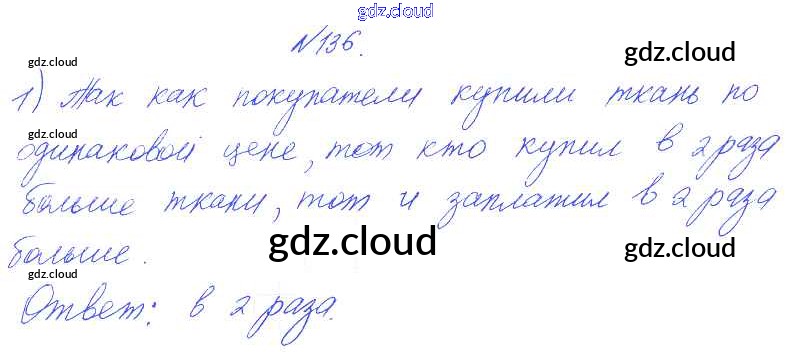 gdz.cloud
№136.
gdz.cloud
gdz.cloud
1) Так как покупатели купили ткань по
gdz.cloud
одинаковой цене, тот кто купил в 2 раза
gdz.cloud
gdz.cloud
больше ткани, тот и заплатил в 2 раза
больше.
gdz.cloud
gdz.cloud
gdz.cloud
Ответ: в 2 раза.
gdz.cloud
gdz.cloud